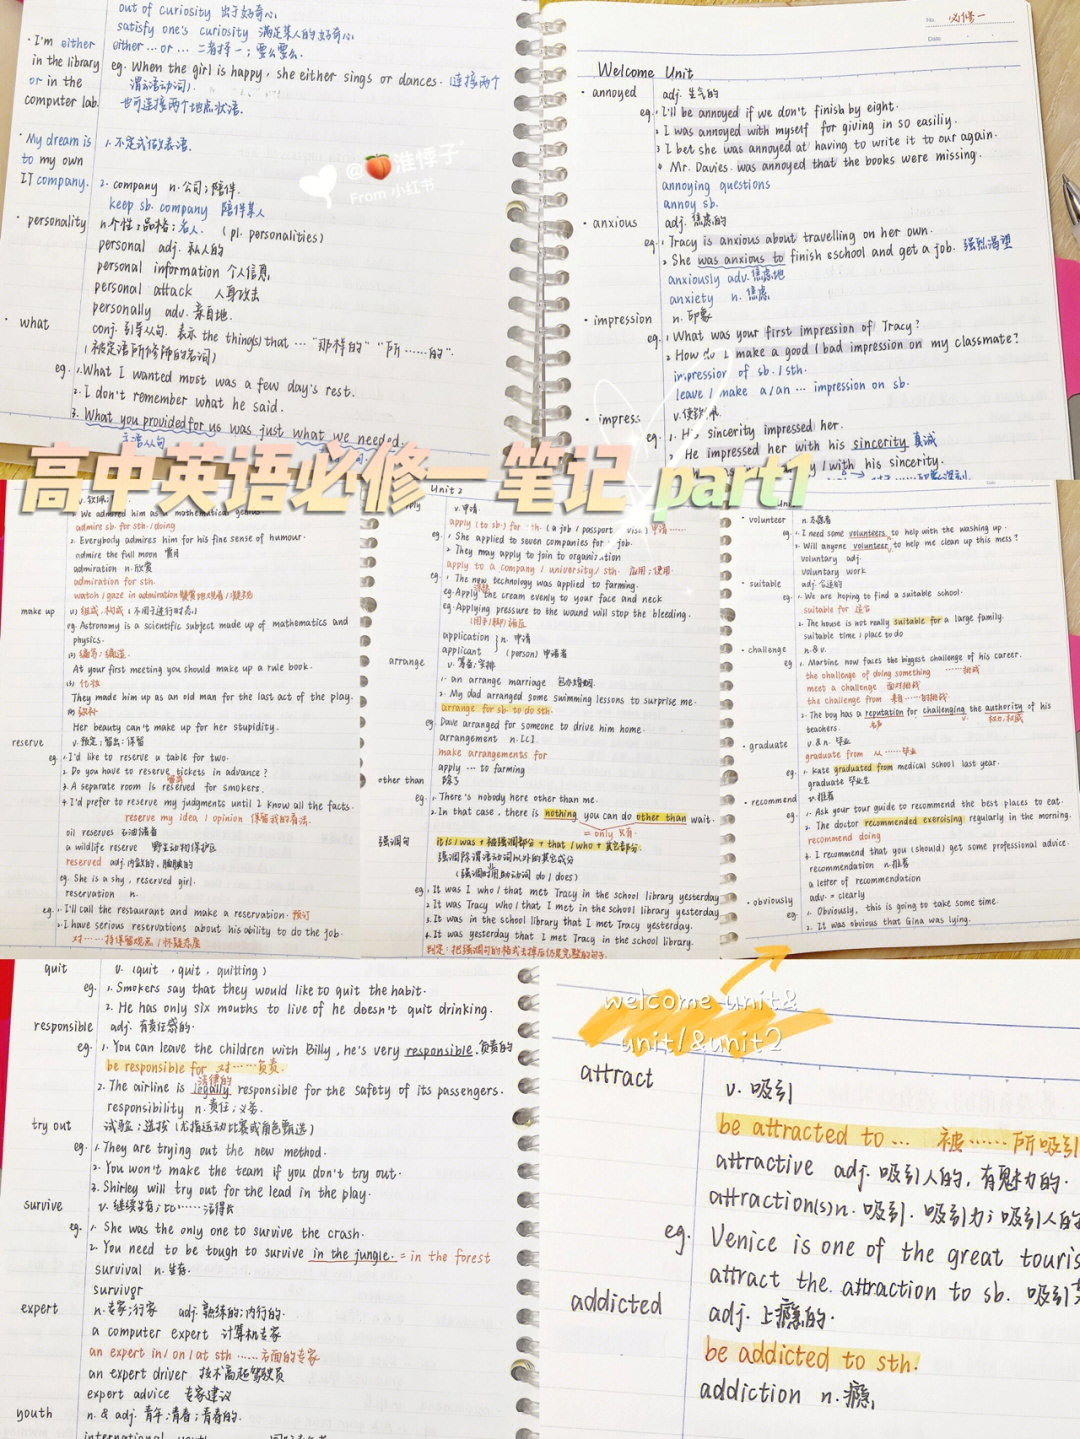 out of curiosity 出于好奇心
satisfy one's curiosity 满足某人的好奇心
· I'm either in the library or in the computer lab.
either … or … 二者择一；要么要么.
eg. When the girl is happy, she either sings or dances. (连接两个
谓语动词)
也可连接两个地点状语.
· My dream is to my own IT company.
1. 不定式做表语.
2. company n.公司；陪伴.
keep sb. company 陪伴某人
· personality n.个性；品格；名人. (pl. personalities)
personal adj. 私人的
personal information 个人信息
personal attack 人身攻击
personally adv. 亲自地.
· what conj. 引导从句. 表示 the thing(s) that … "那样的" "所……的".
(被定语所修饰的名词)
eg. 1. What I wanted most was a few day's rest.
2. I don't remember what he said.
3. What you provided for us was just what we needed.
主语从句
@🍑淮悸子
From 小红书
No. 必修一
Date
Welcome Unit
· annoyed adj. 生气的
eg. 1. I'll be annoyed if we don't finish by eight.
2. I was annoyed with myself for giving in so easiliy.
3. I bet she was annoyed at having to write it to our again.
4. Mr. Davies. was annoyed that the books were missing.
annoying questions
annoy sb.
· anxious adj. 焦虑的
eg. 1. Tracy is anxious about travelling on her own.
2. She was anxious to finish eschool and get a job. 强烈渴望
anxiously adv. 焦虑地
anxiety n. 焦虑
· impression n. 印象
eg. 1. What was your first impression of Tracy?
2. How do I make a good / bad impression on my classmate?
impression of sb. / sth.
leave / make a/an … impression on sb.
· impress v.
eg. 1. His sincerity impressed her.
2. He impressed her with his sincerity 真诚
with his sincerity.
高中英语必修一笔记 part1
We admired him as a mathematical genius.
admire sb. for sth. / doing
2. Everybody admires him for his fine sense of humour.
admire the full moon 赏月
admiration n. 欣赏
admiration for sth.
watch / gaze in admiration
make up (1) 组成；构成 (不用于进行时态)
eg. Astronomy is a scientific subject made up of mathematics and
physics.
(2) 编写；编造.
At your first meeting you should make up a rule book.
(3) 化妆
They made him up as an old man for the last act of the play.
Her beauty can't make up for her stupidity.
reserve v. 预定；留出；保留
eg. 1. I'd like to reserve a table for two.
2. Do you have to reserve tickets in advance?
3. A separate room is reserved for smokers.
4. I'd prefer to reserve my judgments until I know all the facts.
reserve my idea / opinion 保留我的看法.
oil reserves 石油储备
a wildlife reserve 野生动物保护区
reserved adj. 内敛的，腼腆的
eg. She is a shy, reserved girl.
reservation n.
eg. 1. I'll call the restaurant and make a reservation. 预订
2. I have serious reservations about his ability to do the job.
对……持保留观点 / 怀疑态度
Unit 2
v. 申请
apply (to sb.) for sth. (a job / passport / visa) 申请……
eg. 1. She applied to seven companies for job.
2. They may apply to join to organization
apply to a company / university / sth. 应用；使用.
eg. 1. The new technology was applied to farming.
eg. Apply the cream evenly to your face and neck
eg. Applying pressure to the wound will stop the bleeding.
application } n. 申请
applicant } (person) 申请者
arrange v. 筹备；安排
1. an arrange marriage 包办婚姻.
2. My dad arranged some swimming lessons to surprise me.
arrange for sb. to do sth.
eg. Dave arranged for someone to drive him home.
arrangement n. [C]
make arrangements for
apply … to farming
other than 除了
eg. 1. There's nobody here other than me.
2. In that case, there is nothing you can do other than wait.
= only 只有
强调句 it is / was + 被强调部分 + that / who + 其它部分.
强调除谓语动词以外的其它成分
(强调时用助动词 do / does)
eg. 1. It was I who / that met Tracy in the school library yesterday
2. It was Tracy who / that I met in the school library yesterday
3. It was in the school library that I met Tracy yesterday.
4. It was yesterday that I met Tracy in the school library.
判定：把强调句的格式去掉后仍是完整的句子.
Unit
· volunteer n. 志愿者
eg. 1. I need some volunteers to help with the washing up.
2. Will anyone volunteer to help me clean up this mess?
voluntary adj.
voluntary work
· suitable adj. 合适的
eg. 1. We are hoping to find a suitable school.
suitable for 适合
2. The house is not really suitable for a large family.
suitable time / place to do
· challenge n. & v.
eg 1. Martine now faces the biggest challenge of his career.
the challenge of doing something ……挑战
meet a challenge 面对挑战
the challenge from 来自……的挑战.
2. The boy has a reputation for challenging the authority of his
teachers. 名声 v. 权力，权威
· graduate v. & n. 毕业
graduate from 从……毕业
eg. 1. Kate graduated from medical school last year.
graduate 毕业生
· recommend v. 推荐
eg. 1. Ask your tour guide to recommend the best places to eat.
2. The doctor recommended exercising regularly in the morning.
recommend doing
4. I recommend that you (should) get some professional advice.
recommendation n. 推荐
a letter of recommendation
· obviously adv. = clearly
eg. 1. Obviously, this is going to take some time.
2. It was obvious that Gina was lying.
quit v. (quit , quit , quitting)
eg. 1. Smokers say that they would like to quit the habit.
2. He has only six mouths to live of he doesn't quit drinking.
responsible adj. 有责任感的.
eg. 1. You can leave the children with Billy, he's very responsible. 负责的
be responsible for 对……负责.
法律的
2. The airline is legally responsible for the safety of its passengers.
responsibility n. 责任；义务.
try out 试验；选拔 (尤指运动比赛或角色甄选)
eg. 1. They are trying out the new method.
2. You won't make the team if you don't try out.
3. Shirley will try out for the lead in the play.
survive v. 继续生存；比……活得长
eg. 1. She was the only one to survive the crash.
2. You need to be tough to survive in the jungle. = in the forest
survival n. 生存.
survivor
expert n. 专家；行家 adj. 熟练的；内行的.
a computer expert 计算机专家
an expert in / on / at sth ……方面的专家
an expert driver 技术高超驾驶员
expert advice 专家建议
youth n. & adj. 青年；青春；青春的.
international
welcome unit&
unit1&unit2
attract v. 吸引
be attracted to … 被……所吸引
attractive adj. 吸引人的，有魅力的.
attraction(s) n. 吸引. 吸引力；吸引人的
eg. Venice is one of the great touris
attract the. attraction to sb. 吸引某
addicted adj. 上瘾的.
be addicted to sth.
addiction n. 瘾